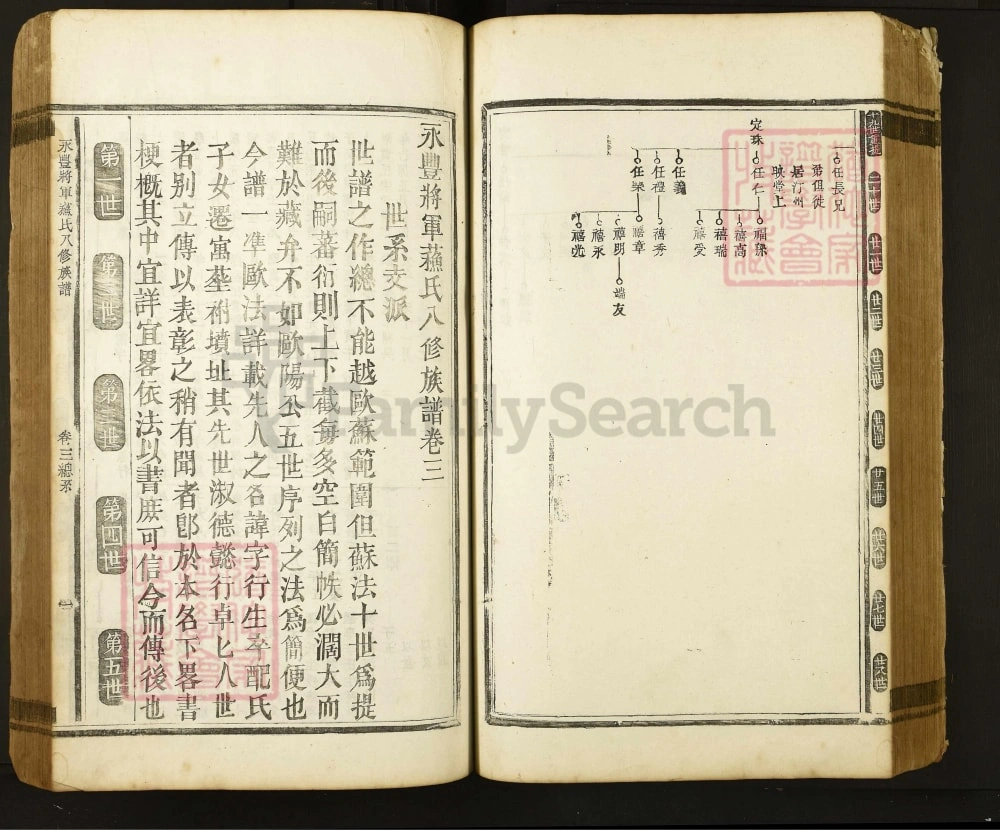 廿一世
廿二世
廿三世
廿四世
廿五世
廿六世
廿七世
廿八世
任長兄
君俱徙
居汀州
映堂上
定珠
任仁
福高
禧瑞
禧受
任義
任禮
禧秀
任榮
禧章
禧明
端友
禧永
永豐將軍蘓氏八修族譜卷三
世系支派
世譜之作總不能越歐蘇範圍但蘇法十世爲提
而後嗣蕃衍則上下截每多空白簡帙必濶大而
難於藏弁不如歐陽公五世序列之法爲簡便也
今譜一準歐法詳載先人之名諱字行生卒配氏
子女遷寓塟祔墳址其先世淑德懿行卓匕人世
者别立傳以表彰之稍有聞者卽於本名下畧書
梗概其中宜詳宜畧依法以書庶可信今而傳後也
第一世
第二世
第三世
第四世
第五世
永豐將軍蘓氏八修族譜
卷三總系
一
FamilySearch